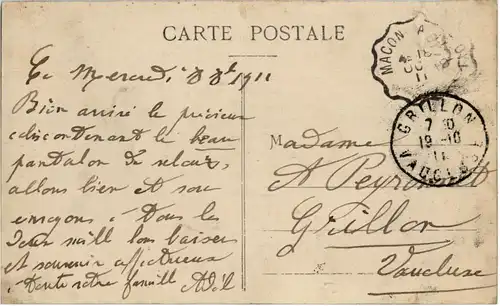 CARTE POSTALE
MACON A
18
11
Ce Mercredi 18 8bre 1911
Bien arrivé le précieux
colis contenant le beau
pantalon de velours,
allons bien et vous
envoyons à Tous les
Deux mille bons baisers
et souvenir affectueux
de toute notre famille
GRILLON
7 30
19-10
11
VAUCLUSE
Madame
A Peyronnet
Grillon
Vaucluse